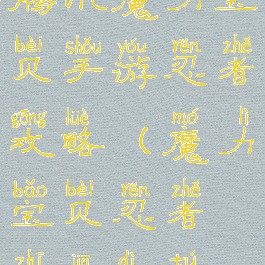 bèi shǒu yóu rěn zhě
贝手游忍者
gōng lüè mó lì
攻略(魔力
bǎo bèi rěn zhě
宝贝忍者